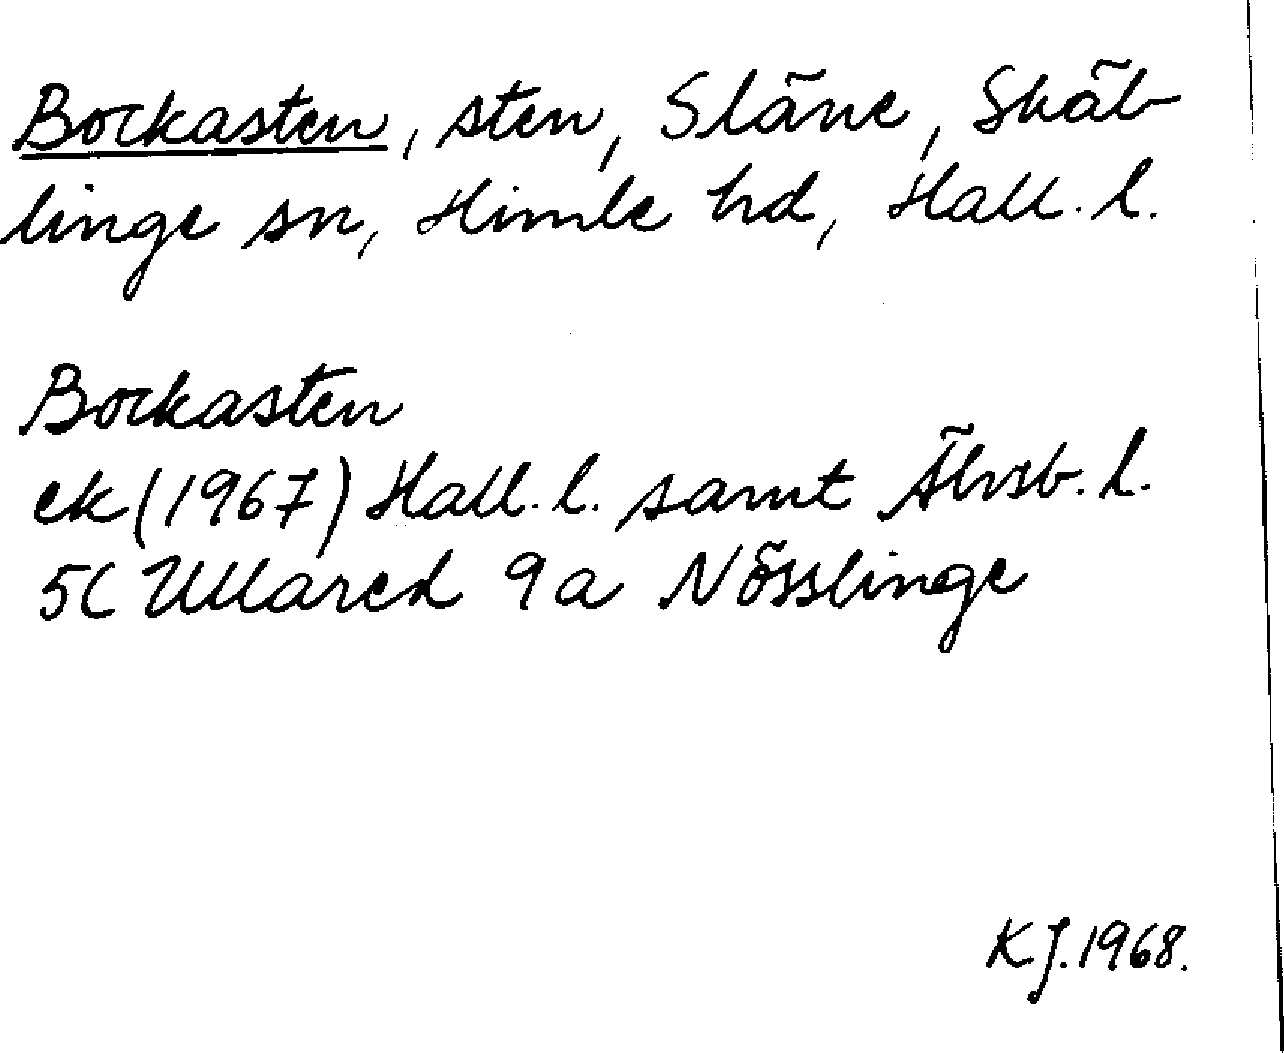 Bockasten, sten, Släne, Skäb
linge sn, Himle hd, Hall. l.
Bockasten
ek (1967) Hall. l. samt Älvsb. l.
5C Ullared 9a Nösslinge
KJ. 1968.